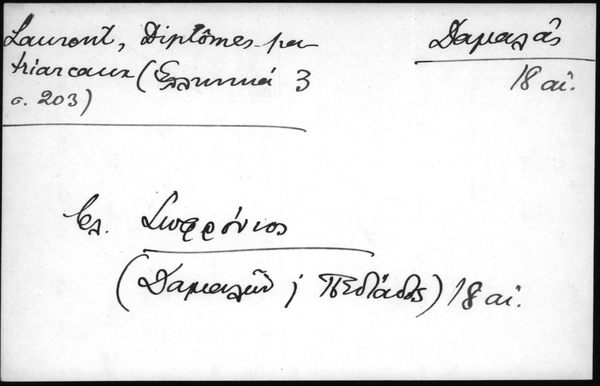 Laurent, Diplômes pa
triarcaux (Ἑλληνικά 3
σ. 203)
Δαμαλᾶς
18 αἰ.
βλ. Σωφρόνιος
(Δαμαλῶν ; Πεδιάδος) 18 αἰ.